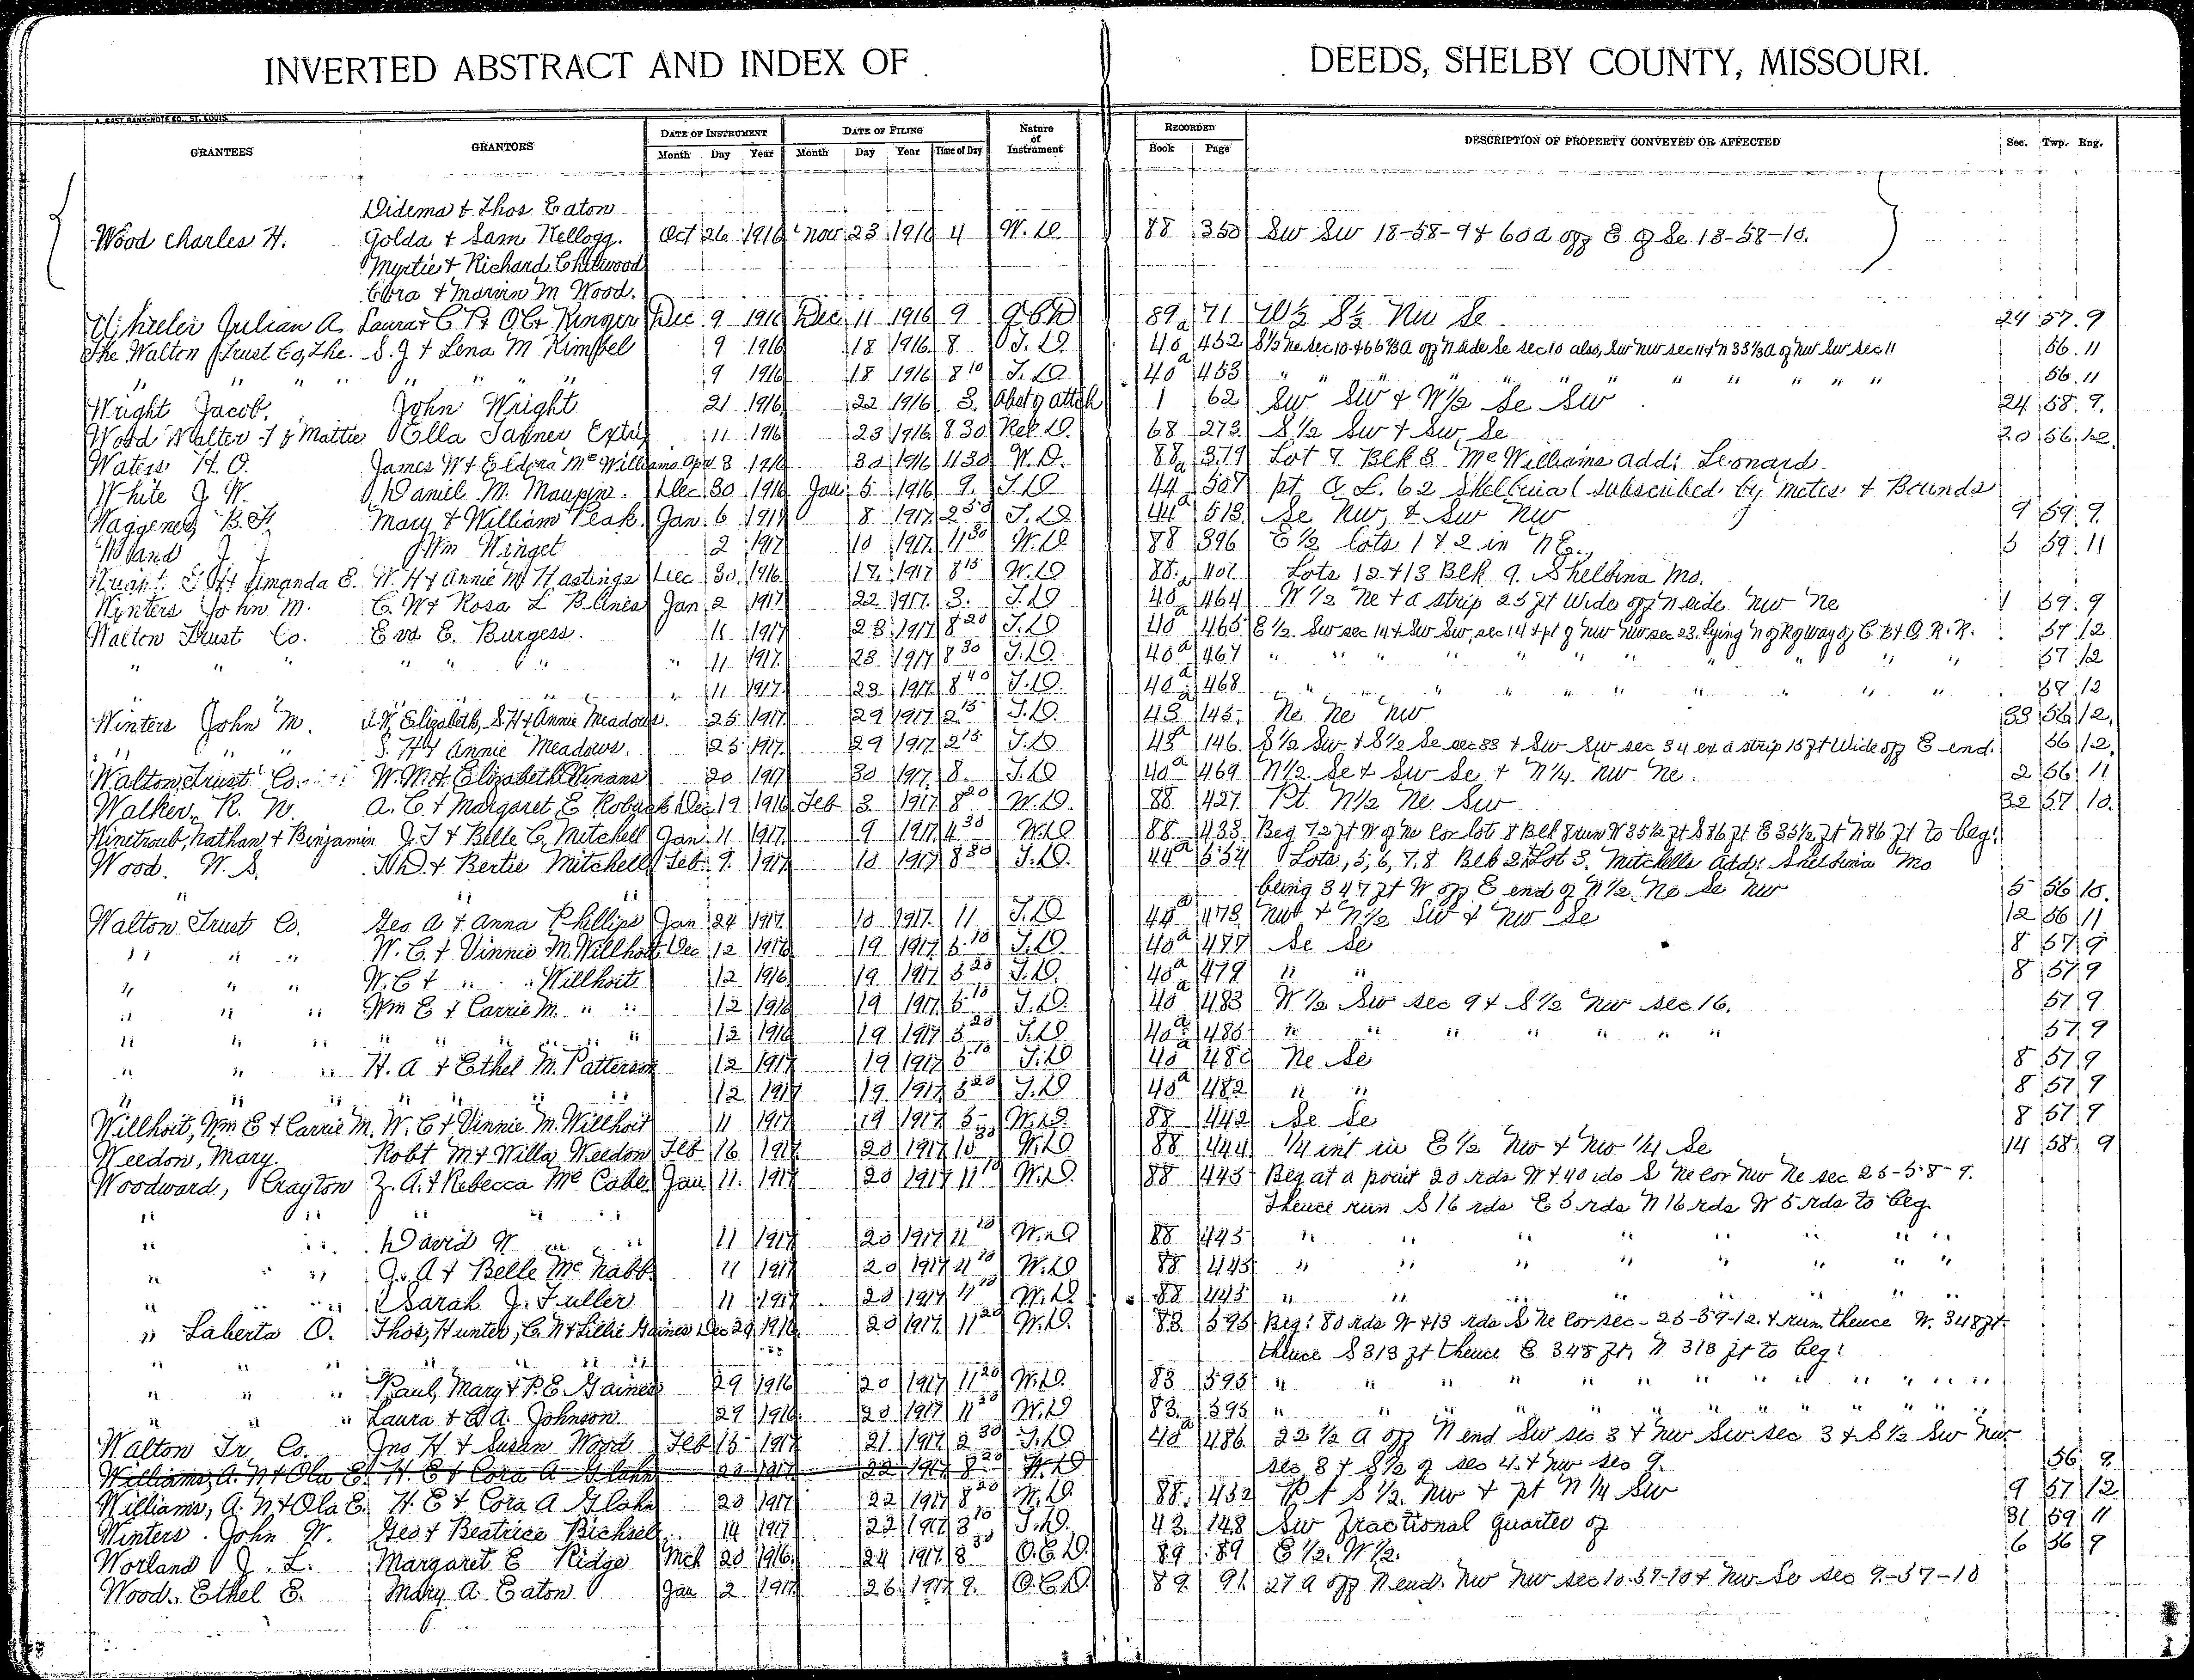 INVERTED ABSTRACT AND INDEX OF DEEDS, SHELBY COUNTY, MISSOURI.
GRANTEES GRANTORS DATE OF INSTRUMENT Month Day Year DATE OF FILING Month Day Year Time of Day Nature of Instrument RECORDED Book Page DESCRIPTION OF PROPERTY CONVEYED OR AFFECTED Sec. Twp. Rng.
Didema & Thos Eaton
Wood Charles H. Golda & Sam Kellogg. Oct 26 1916 Nov 23 1916 4 W.D. 88 350 Sw Sw 18-58-9 & 60a off E of Se 13-58-10.
Myrtie & Richard Chitwood
Cora & Marvin M Wood.
Wheeler Julian A. Laura & C.P. Dec 9 1916 Dec 11 1916 9 QCD 89 71 W½ S½ Nw Se 24 57 9
The Walton Trust Co, The. S. J & Lena M Kimbel 9 1916 18 1916 8 T.D. 40a 452 S½ Ne sec 10 & 66⅔a off N side Se sec 10 also, Sw Nw sec 11 & N 33⅓a of Nw Sw sec 11 56 11
" " " " " " " " 9 1916 18 1916 8 10 T.D. 40a 453 " " " " " " " " " " " 56 11
Wright Jacob. John Wright 21 1916 22 1916 3. Abst of attch 1 62 Sw Sw & W½ Se Sw 24 58 9.
Wood Walter T & Mattie Ella Tanner Extrx 11 1916 23 1916 8.30 Rel D. 68 273 S½ Sw & Sw Se 20 56 12
Waters H. O. James W & Eldora McWilliams Apr 8 1916 30 1916 11 30 W.D. 88 379 Lot 7 Blk 3 McWilliams add: Leonard
White J W. Daniel M. Maupin. Dec 30 1916 Jan 5 1917 9. T.D. 44a 507 pt O L. 62 Shelbina (subscribed by metes & Bounds
Waggener, B. F. Mary & William Peak. Jan 6 1917 8 1917 2 50 T.D. 44a 513 Se Nw, & Sw Nw 9 59 9
Woland J J Wm Winget 2 1917 10 1917 11 30 W.D. 88 396 E½ lots 1 & 2 in NE 3 59 11
Amanda E. W. H & Annie M Hastings Dec 30 1916 17 1917 8 15 W.D. 88 401 Lots 12 & 13 Blk 9. Shelbina Mo.
Winters John M. C. W & Rosa L Jan 2 1917 22 1917 3. T.D. 40a 464 W½ Ne & a strip 25 ft wide off N side Nw Ne 1 59 9
Walton Trust Co. Eva E. Burgess. 11 1917 23 1917 8 20 T.D. 40a 465 E½ Sw sec 14 & Sw Sw, sec 14 & pt of Nw Nw sec 23. lying N of R of Way of C. B & Q. R.R. 57 12
" " " " " " " 11 1917 23 1917 8 30 T.D. 40a 467 " " " " " " " " " " 57 12
" " " " 11 1917 23 1917 8 40 T.D. 40a 468 " " " " " " " " " " 57 12
Winters John M. Elizabeth, S.H & Annie Meadows. 25 1917 29 1917 2 15 T.D. 43 145 Ne Ne Nw 33 56 12
" " " S. H & Annie Meadows. 25 1917 29 1917 2 15 T.D. 43a 146 S½ Sw & S½ Se sec 33 & Sw Sw sec 34 ex a strip 15 ft Wide off E end. 56 12
Walton Trust Co. W. M & Elizabeth Vinans 20 1917 30 1917 8 T.D. 40a 469 N½ Se & Sw Se & N¼ Nw Ne. 2 56 11
Walker, R. W. A. C & Margaret E Roback Dec 19 1916 Feb 3 1917 8 20 W.D. 88 427 Pt N½ Ne Sw 32 57 10
Winetroub, Nathan & Benjamin J. T & Belle C. Mitchell Jan 11 1917 9 1917 4 30 W.D. 88 433 Beg 72 ft W of Ne Cor lot 8 Blk 8 run W 35½ ft S 86 ft E 35½ ft N 86 ft to beg:
Wood. W. S. & Bertie Mitchell Feb. 9 1917 10 1917 8 30 T.D. 44a 534 Lots, 5, 6, 7, 8 Blk 2 & Lot 3. Mitchells add: Shelbina Mo
" " being 347 ft W off E end of N½ Ne Se Nw 5 56 10
Walton Trust Co. Geo A & Anna Phillips Jan 24 1917 10 1917 11 T.D. 40a 473 Nw & N½ Sw & Nw Se 12 56 11
" " " W. C. & Vinnie M. Willhoit Dec 12 1916 19 1917 5 10 T.D. 40a 477 Se Se 8 57 9
" " " W. C & " " Willhoit 12 1916 19 1917 5 20 T.D. 40a 479 " " 8 57 9
" " " Wm E & Carrie M. " " 12 1916 19 1917 5 10 T.D. 40a 483 W½ Sw sec 9 & S½ Nw sec 16. 57 9
" " " " " " " " " 12 1916 19 1917 5 20 T.D. 40a 485 " " " " " " " 57 9
" " " H. A & Ethel M. Patterson 12 1917 19 1917 5 10 T.D. 40a 480 Ne Se 8 57 9
" " " " " " " " 12 1917 19 1917 5 20 T.D. 40a 482 " " 8 57 9
Willhoit, Wm E & Carrie M. W. C & Vinnie M. Willhoit 11 1917 19 1917 5 W.D. 88 442 Se Se 8 57 9
Weedon, Mary. Robt M & Willa Weedon Feb 16 1917 20 1917 10 30 W.D. 88 444 ¼ int in E½ Nw & Nw ¼ Se 14 58 9
Woodward, Crayton Z. A. & Rebecca McCabe Jan 11 1917 20 1917 11 10 W.D. 88 445 Beg at a point 20 rds W & 40 rds S Ne cor Nw Ne sec 25-58-9.
" " " " " Thence run S 16 rds E 5 rds N 16 rds W 5 rds to beg
" " David W " " 11 1917 20 1917 11 10 W.D. 88 445 " " " " " " "
" " J. A & Belle McNabb 11 1917 20 1917 11 10 W.D. 88 445 " " " " " " "
" " Sarah J. Fuller 11 1917 20 1917 11 10 W.D. 88 445 " " " " " " "
" Laberta O. Thos, Hunter, C. N & Lillie Gaines Dec 29 1916 20 1917 11 20 W.D. 83 595 Beg: 80 rds W & 13 rds S Ne Cor sec - 23-59-12. & run thence W. 348 ft.
" " " " " " thence S 313 ft thence E 348 ft, N 313 ft to beg:
" " " Paul, Mary & P. E. Gaines 29 1916 20 1917 11 20 W.D. 83 595 " " " " " " " " " " " "
" " " Laura & A. Johnson 29 1916 20 1917 11 20 W.D. 83 595 " " " " " " " " " " " "
Walton Tr Co. Jno H & Susan Wood Feb 15 1917 21 1917 2 30 T.D. 40a 486 22½ a off N end Sw sec 3 & Nw Sw sec 3 & S½ Sw Nw
Williams, A. N & Ola E. H. E & Cora A Glahn 20 1917 22 1917 8 20 W.D. sec 3 & S½ of sec 4. & Nw sec 9. 56 9
Williams, A. N & Ola E. H. E & Cora A Glahn 20 1917 22 1917 8 20 W.D. 88 452 Pt S½ Nw & pt N¼ Sw 9 57 12
Winters John W. Geo & Beatrice Bichsel 14 1917 22 1917 3 10 T.D. 43 148 Sw fractional quarter of 31 59 11
Worland J. L. Margaret E Ridge Mch 20 1916 24 1917 8 30 Q.C.D. 89 89 E½ W½. 6 56 9
Wood, Ethel E. Mary A. Eaton Jan 2 1917 26 1917 9. Q.C.D. 89 91 27 a off N end Nw Nw sec 10-57-10 & Nw Se sec 9-57-10